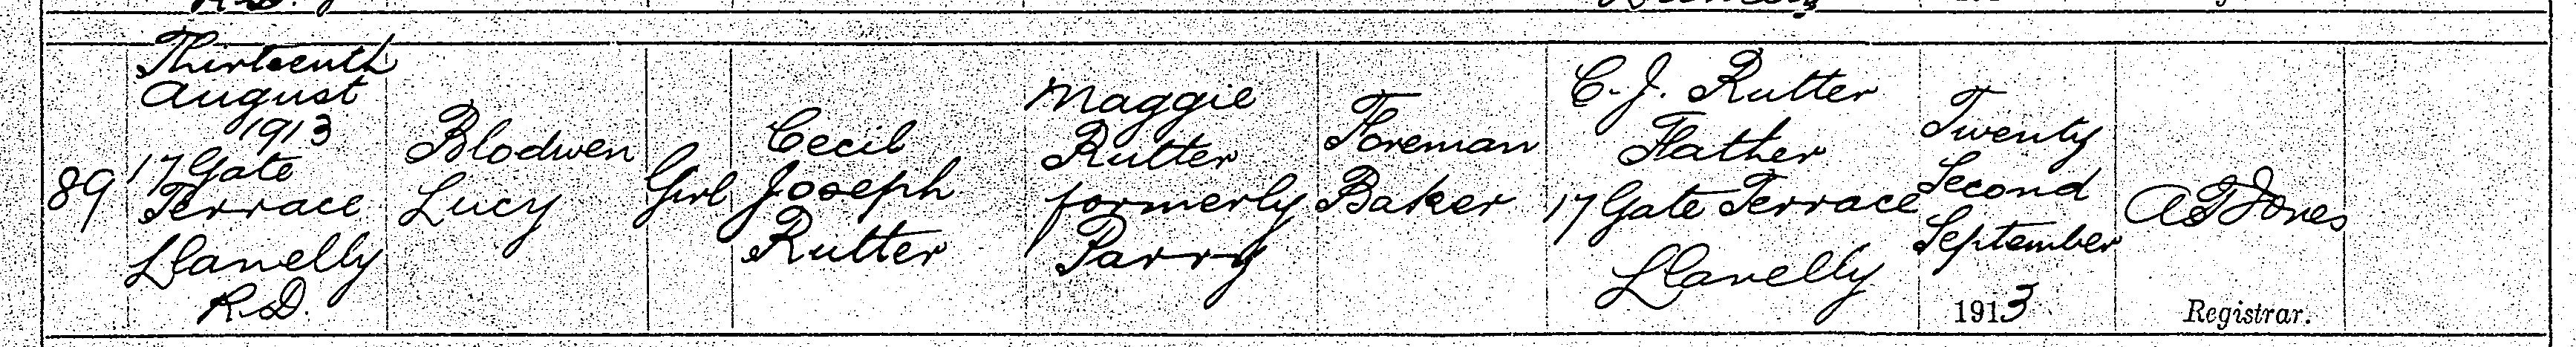 89
Thirteenth
August
1913
17 Gate
Terrace
Llanelly
R.D.
Blodwen
Lucy
Girl
Cecil
Joseph
Rutter
Maggie
Rutter
formerly
Parry
Foreman
Baker
C. J. Rutter
Father
17 Gate Terrace
Llanelly
Twenty
Second
September
1913
Jones
Registrar.